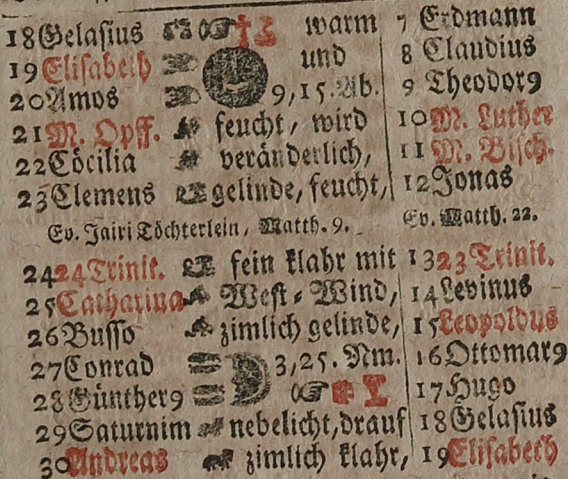 18 Gelasius warm 7 Erdmann
19 Elisabeth und 8 Claudius
20 Amos 9,15. Ab. 9 Theodor9
21 M. Opff. feucht, wird 10 M. Luther
22 Cöcilia veränderlich, 11 M. Bisch.
23 Clemens gelinde, feucht, 12 Jonas
Ev. Jairi Töchterlein, Matth. 9. Ev. Matth. 22.
24 24 Trinit. fein klahr mit 13 23 Trinit.
25 Catharina West-Wind, 14 Levinus
26 Busso zimlich gelinde, 15 Leopoldus
27 Conrad 3,25. Nm. 16 Ottomar9
28 Günther9 17 Hugo
29 Saturnim nebelicht, drauf 18 Gelasius
30 Andreas zimlich klahr, 19 Elisabeth